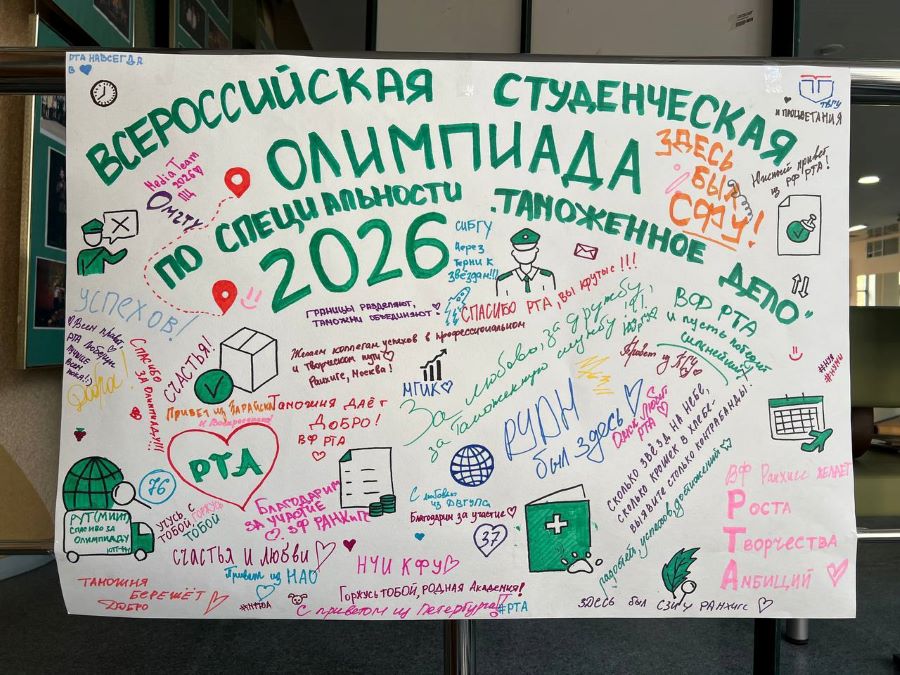 РТА НАВСЕГДА
В
ВСЕРОССИЙСКАЯ СТУДЕНЧЕСКАЯ
ОЛИМПИАДА
ПО СПЕЦИАЛЬНОСТИ "ТАМОЖЕННОЕ ДЕЛО"
2026
ТвГУ
и ПРОЦВЕТАНИЯ
Media Team
2026
ОмГТУ
ЗДЕСЬ
БЫЛ
СФУ!
Южный привет
из РФ РТА!
СибГУ
Через
Тернии к
звёздам!!!
УСПЕХОВ!
ГРАНИЦЫ РАЗДЕЛЯЮТ,
ТАМОЖНИ ОБЪЕДИНЯЮТ
СПАСИБО РТА ВЫ КРУТЫЕ!!!
ВФ РТА
и пусть победит
сильнейший
Всем привет
РТА
Добра!
СПАСИБО
ЗА ОЛИМПИАДУ!!!
СЧАСТЬЯ!
Желаем коллегам успехов в профессиональном
и творческом пути
Ранхигс, Москва!
МГИК
За любовь, за дружбу,
за таможенную службу!
Привет из
Привет из Зарайска
и Воскресенска!
ТАМОЖНЯ ДАЁТ
ДОБРО!
ВФ РТА
РУДН
был здесь
РТА
РТА
76
СКОЛЬКО ЗВЁЗД НА НЕБЕ,
СКОЛЬКО КРОШЕК В ХЛЕБЕ-
ВЫ ЯВИТЕ СТОЛЬКО КОНТРАБАНДЫ!
радостей, успехов, достижений
ВФ Ранхигс желает
Роста
Творчества
Амбиций
БЛАГОДАРИМ
ЗА УЧАСТИЕ
ЗФ РАНХиГС
С любовью
из ДВГУПС
Благодарим за участие
37
РУТ (МИИТ)
СПАСИБО ЗА
ОЛИМПИАДУ
ГОРЖУСЬ
ТОБОЙ
СЧАСТЬЯ И ЛЮБВИ
Привет из НАО
НЧИ КФУ
ТАМОЖНЯ
БЕРЕЖЁТ
ДОБРО
ГОРЖУСЬ ТОБОЙ, РОДНАЯ АКАДЕМИЯ!
С приветом из Петербурга
#РТА
ЗДЕСЬ БЫЛ СЗИУ РАНХИГС